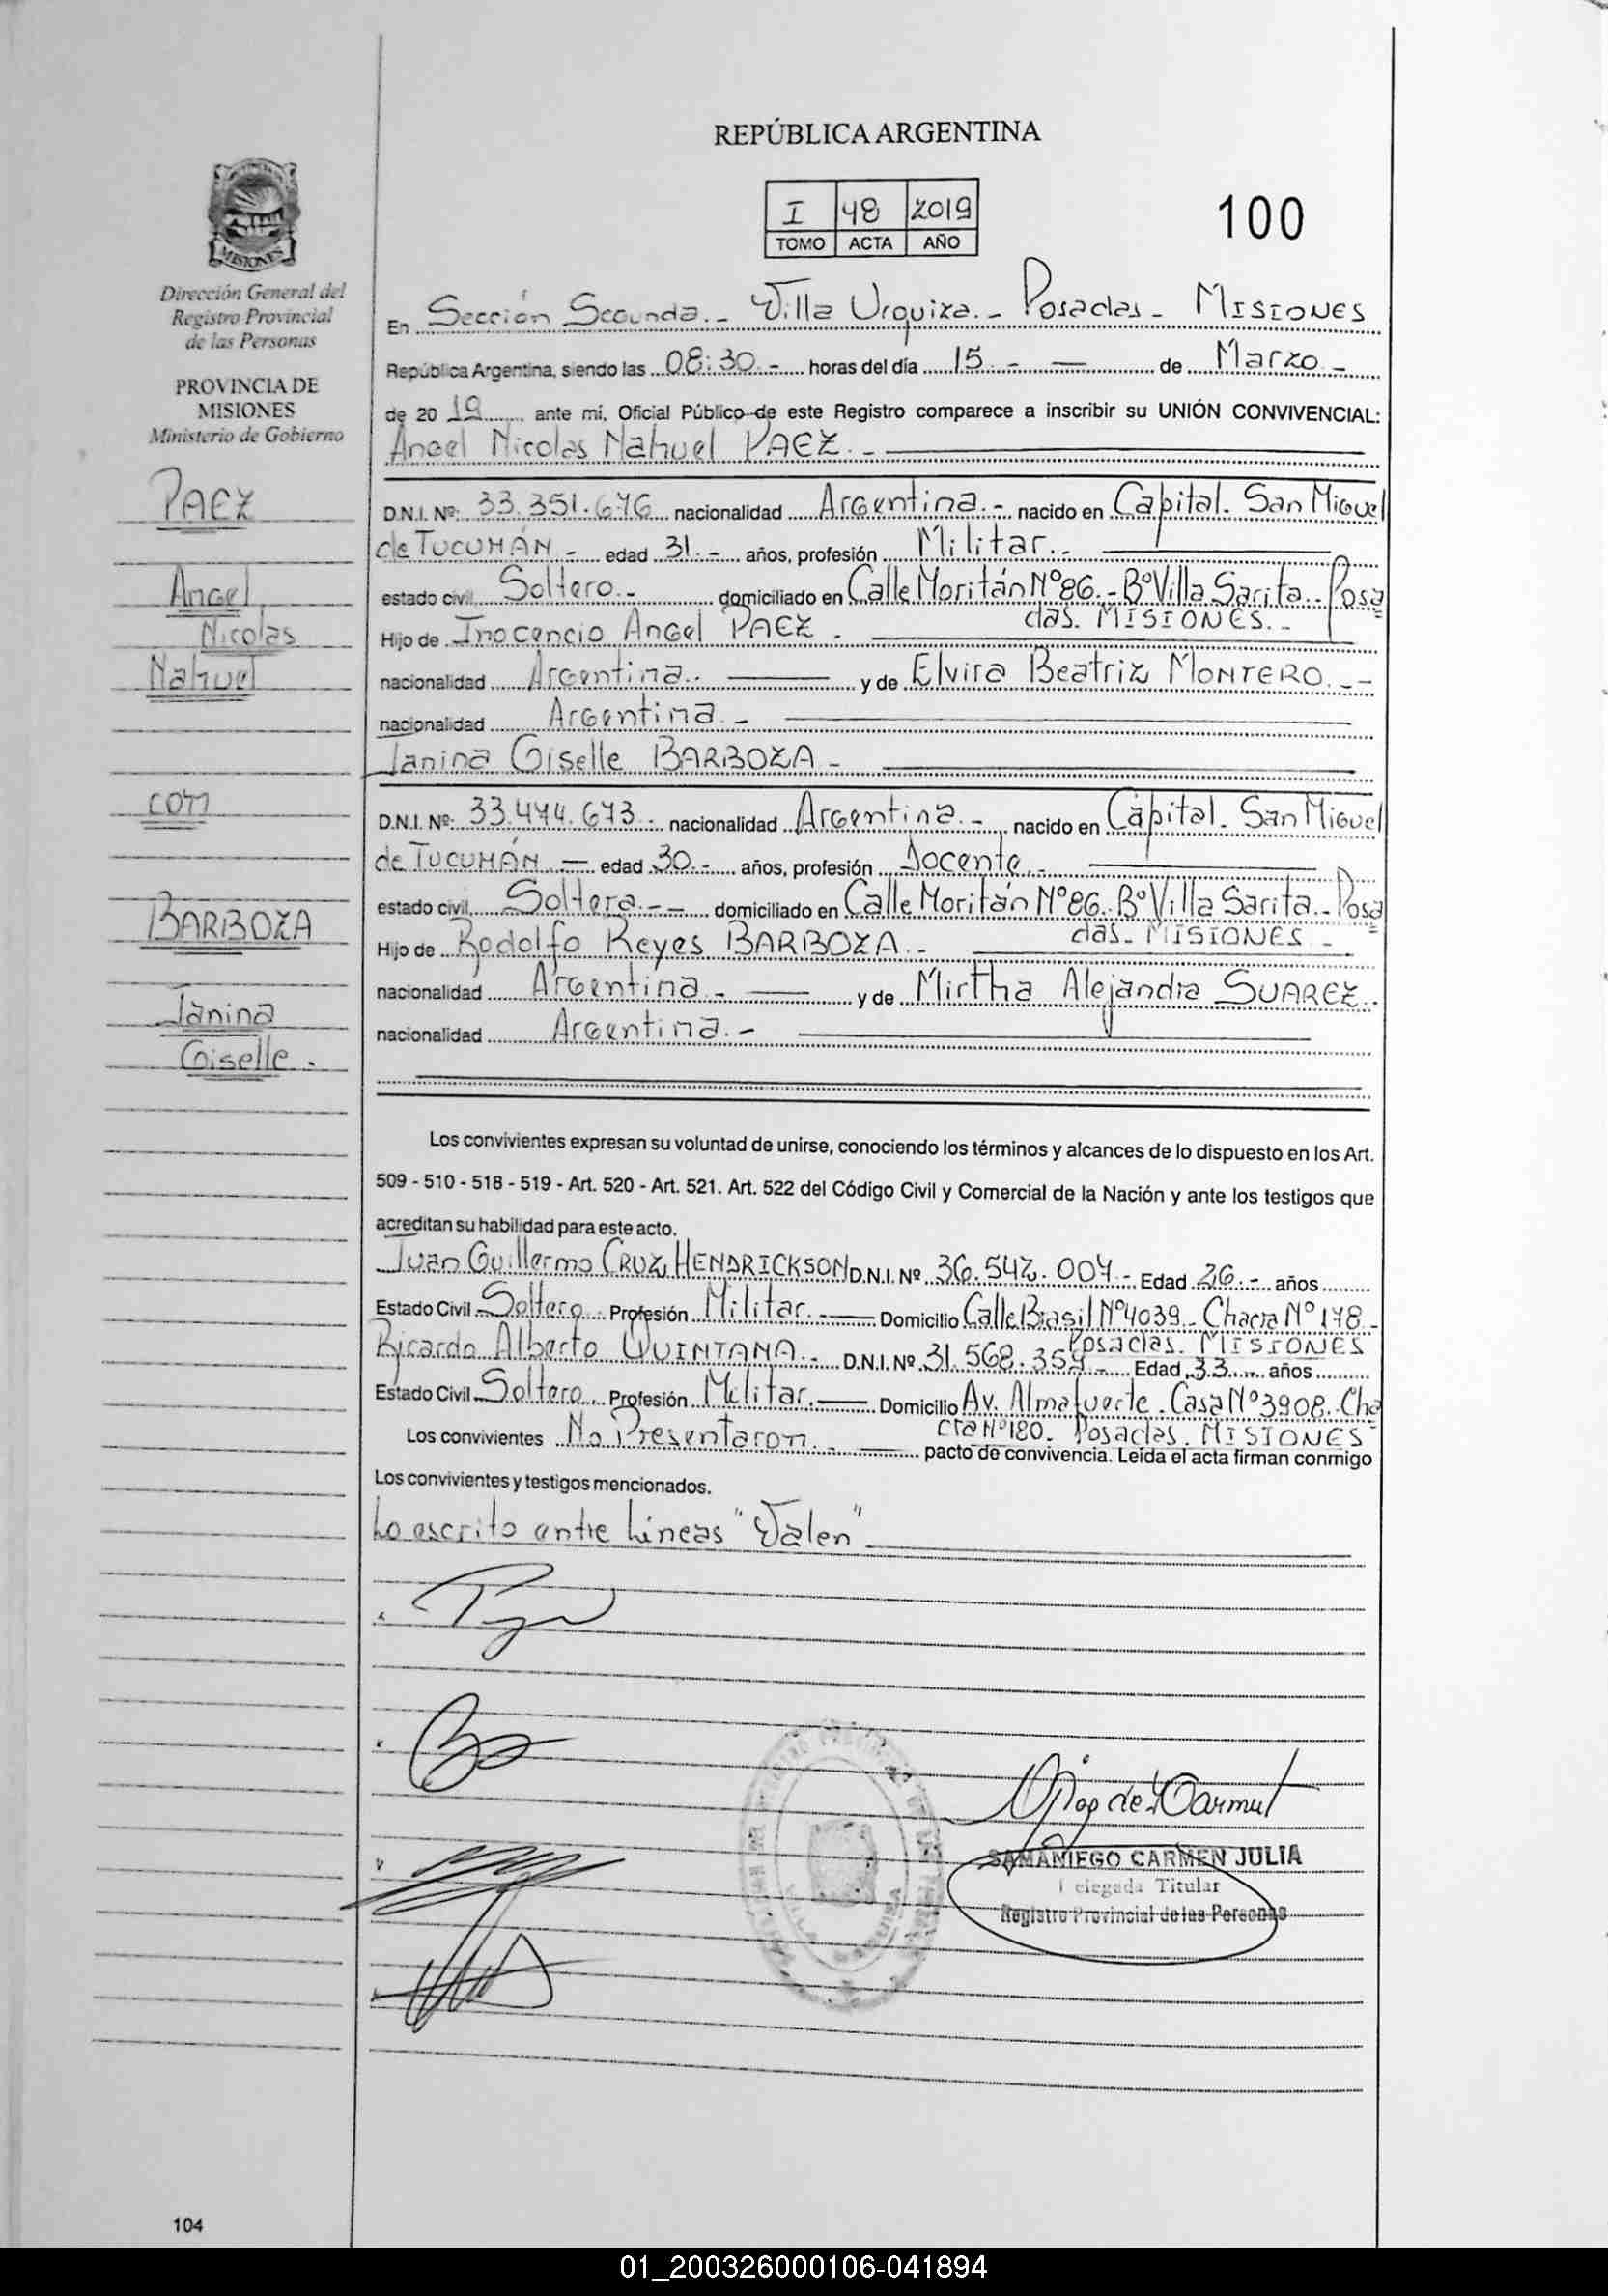 REPÚBLICA ARGENTINA
I 48 2019
TOMO ACTA AÑO
100
MISIONES
Dirección General del
Registro Provincial
de las Personas
PROVINCIA DE
MISIONES
Ministerio de Gobierno
PAEZ
Angel
Nicolas
Nahuel
con
BARBOZA
Janina
Giselle.-
En Sección Segunda.- Villa Urquiza.- Posadas- MISIONES
República Argentina, siendo las 08:30.- horas del día 15.- — de Marzo.-
de 20 19 ante mi, Oficial Público de este Registro comparece a inscribir su UNIÓN CONVIVENCIAL:
Angel Nicolas Nahuel PAEZ.-
D.N.I. Nº: 33.351.676 nacionalidad Argentina.- nacido en Capital. San Miguel
de TUCUMÁN.- edad 31.- años, profesión Militar.-
estado civil Soltero.- domiciliado en Calle Moritán Nº86.-Bº Villa Sarita.-Posa
das. MISIONES.-
Hijo de Inocencio Angel PAEZ.
nacionalidad Argentina.. — y de Elvira Beatriz MONTERO.--
nacionalidad Argentina.-
Janina Giselle BARBOZA-
D.N.I. Nº: 33.474.673.- nacionalidad Argentina.- nacido en Capital. San Miguel
de TUCUMÁN.— edad 30.- años, profesión Docente.-
estado civil Soltera.-- domiciliado en Calle Moritán Nº86.-Bº Villa Sarita.-Posa
das- MISIONES-
Hijo de Rodolfo Reyes BARBOZA.-
nacionalidad Argentina.- — y de Mirtha Alejandra SUAREZ.
nacionalidad Argentina.-
Los convivientes expresan su voluntad de unirse, conociendo los términos y alcances de lo dispuesto en los Art.
509 - 510 - 518 - 519 - Art. 520 - Art. 521. Art. 522 del Código Civil y Comercial de la Nación y ante los testigos que
acreditan su habilidad para este acto.
Juan Guillermo CRUZ HENDRICKSON D.N.I. Nº 36.542.004- Edad 26.- años
Estado Civil Soltero. Profesión Militar.— Domicilio Calle Brasil Nº4039- Chacra Nº178-
Posadas. MISIONES
Ricardo Alberto QUINTANA.- D.N.I. Nº 31.568.354- Edad 33 años
Estado Civil Soltero. Profesión Militar.— Domicilio Av. Almafuerte. Casa Nº3908. Cha
cra Nº180. Posadas. MISIONES-
Los convivientes No Presentaron.- — pacto de convivencia. Leída el acta firman conmigo
Los convivientes y testigos mencionados.
Lo escrito entre Líneas "Valen"
SAMANIEGO CARMEN JULIA
Delegada Titular
Registro Provincial de las Personas
104
01_200326000106-041894